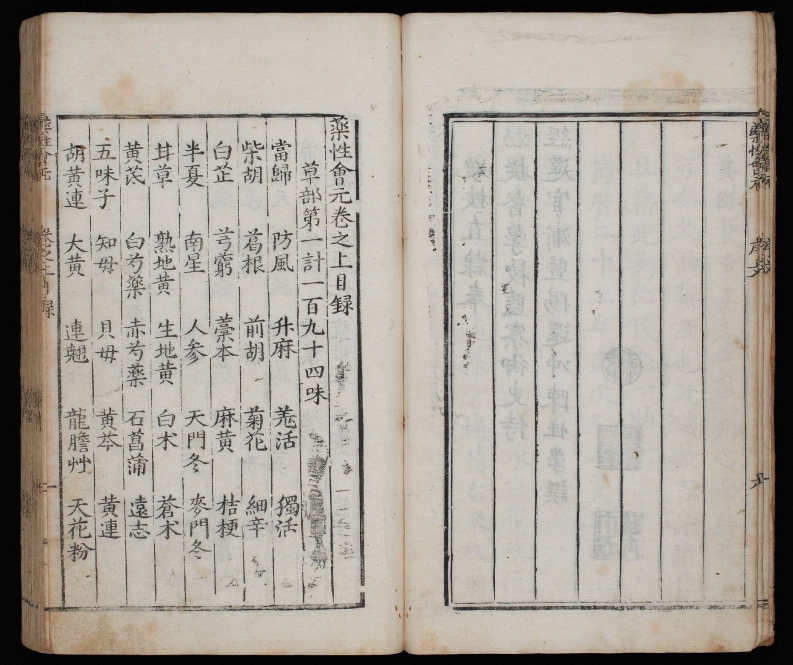 藥性會元卷之上目録
草部第一計一百九十四味
當歸 防風 升麻 羗活 獨活
柴胡 葛根 前胡 菊花 細辛
白芷 芎藭 藁本 麻黄 桔梗
半夏 南星 人參 天門冬 麥門冬
甘草 熟地黄 生地黄 白朮 蒼朮
黄芪 白芍藥 赤芍藥 石菖蒲 遠志
五味子 知母 貝母 黄芩 黄連
胡黄連 大黄 連翹 龍膽艸 天花粉